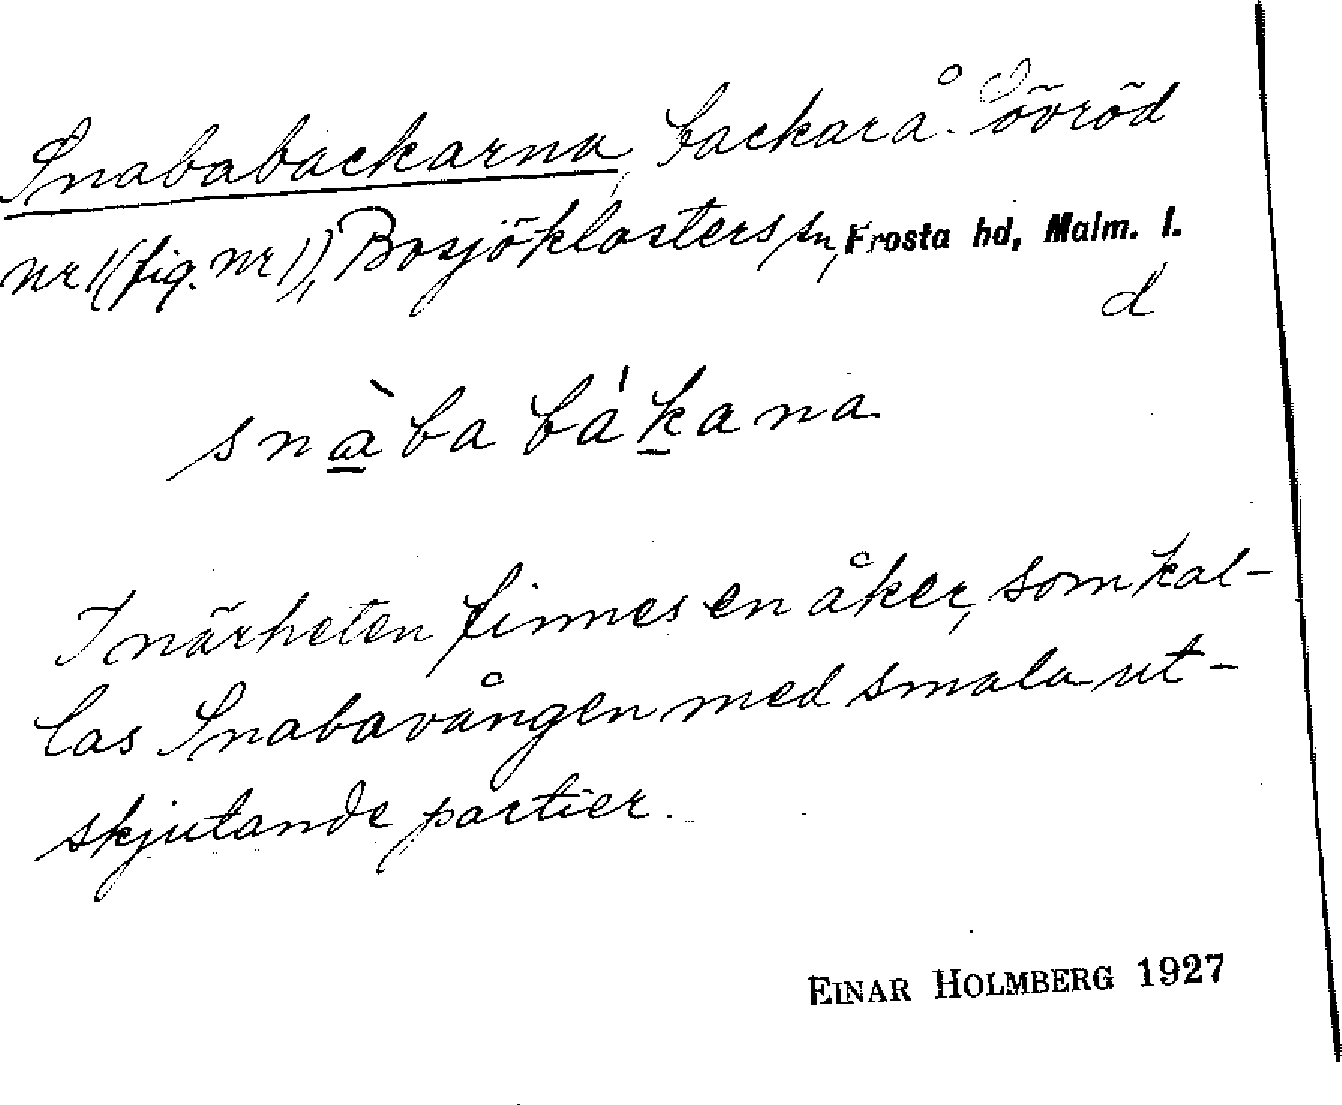 Snababackarna, backar å Sövröd
nr 1 (fig. nr 1), Bosjöklosters sn, Frosta hd, Malm. l.
d
snàba bákana
I närheten finnes en åker, som kal-
las Snabavången med smala ut-
skjutande partier.
EINAR HOLMBERG 1927